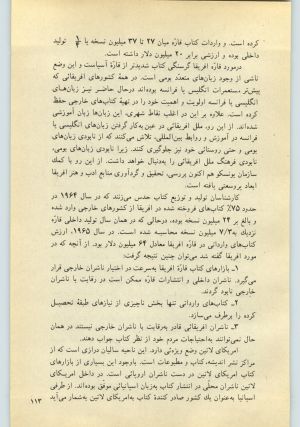 کرده است. و واردات کتاب قاره میان ۲۷ تا ۳۷ میلیون نسخه یا ¾ تولید
داخلی بوده و ارزشی برابر ۲۰ میلیون دلار داشته است.
درمورد قارهٔ افریقا گرسنگی کتاب شدیدتر از قارهٔ آسیاست و این وضع
ناشی از وجود زبان‌های متعدد بومی است. در همهٔ کشورهای افریقائی که
پیش‌تر مستعمرات انگلیس یا فرانسه بوده‌اند درحال حاضر نیز زبان‌های
انگلیسی یا فرانسه اولویت و اهمیت خود را در تهیهٔ کتاب‌های خارجی حفظ
کرده است. علاوه بر این در اغلب نقاط شهری، این زبان‌ها زبان آموزشی
شده‌اند. از این رو، ملل افریقائی در عین به‌کار گرفتن زبان‌های انگلیسی یا
فرانسه در آموزش و روابط بین‌المللی، تلاش می‌کنند که از نابودی زبان‌های
بومی و حتی روستائی خود نیز جلوگیری کنند. زیرا نابودی زبان‌های بومی،
نابودی فرهنگ ملل افریقائی را به‌دنبال خواهد داشت. از این رو با کمک
سازمان یونسکو هم اکنون بررسی، تحقیق و گردآوری منابع ادب و هنر افریقا
ابعاد بروسعتی یافته است.
کارشناسان تولید و توزیع کتاب حدس می‌زنند که در سال ۱۹۶۴ در
حدود ۷۵٪ کتاب‌های فروخته شده در افریقا از کشورهای خارجی وارد شده
و بالغ بر ۲۴ میلیون نسخه بوده، درحالی که در همان سال تولید داخلی قاره
نزدیک به ۷/۳ میلیون نسخه محاسبه شده است. در سال ۱۹۶۵، ارزش
کتاب‌های وارداتی در قارهٔ افریقا معادل ۶۴ میلیون دلار بود. از آنچه که در
مورد افریقا گفته شد می‌توان چنین نتیجه گرفت:
۱ـ بازارهای کتاب قارهٔ افریقا به‌سرعت در اختیار ناشران خارجی قرار
می‌گیرد. ناشران داخلی و انتشارات قاره ممکن است در رقابت با ناشران
خارجی نابود گردند.
۲ـ کتاب‌های وارداتی تنها بخش ناچیزی از نیازهای طبقهٔ تحصیل
کرده را برطرف می‌سازد.
۳ـ ناشران افریقائی قادر به‌رقابت با ناشران خارجی نیستند در همان
حال نمی‌توانند به‌احتیاجات مردم خود از نظر کتاب جواب دهند.
امریکای لاتین وضع ویژه‌ئی دارد. این ناحیه سالیان درازی است که از
مراکز نشر اندیشه، کتاب و مطبوعات است. باوجود این بسیاری از بازارهای
کتاب امریکای لاتین در دست ناشران اروپائی است. در داخل امریکای
لاتین ناشران محلی در انتشار کتاب به‌زبان اسپانیائی موفق بوده‌اند. از طرفی
اسپانیا به‌عنوان یک کشور صادر کنندهٔ کتاب به‌امریکای لاتین به‌شمار می‌آید
۱۱۳